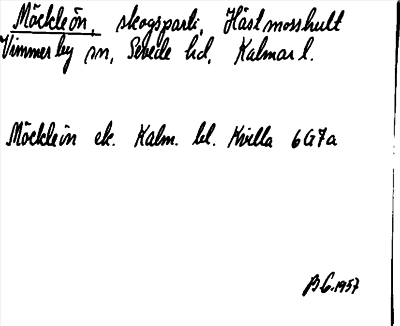 Möckleön, skogsparti, Hästmosshult
Vimmerby sn, Sevede hd, Kalmar l.
Möcklein ek. Kalm. bl. Kvilla 6G7a
B.G. 1957